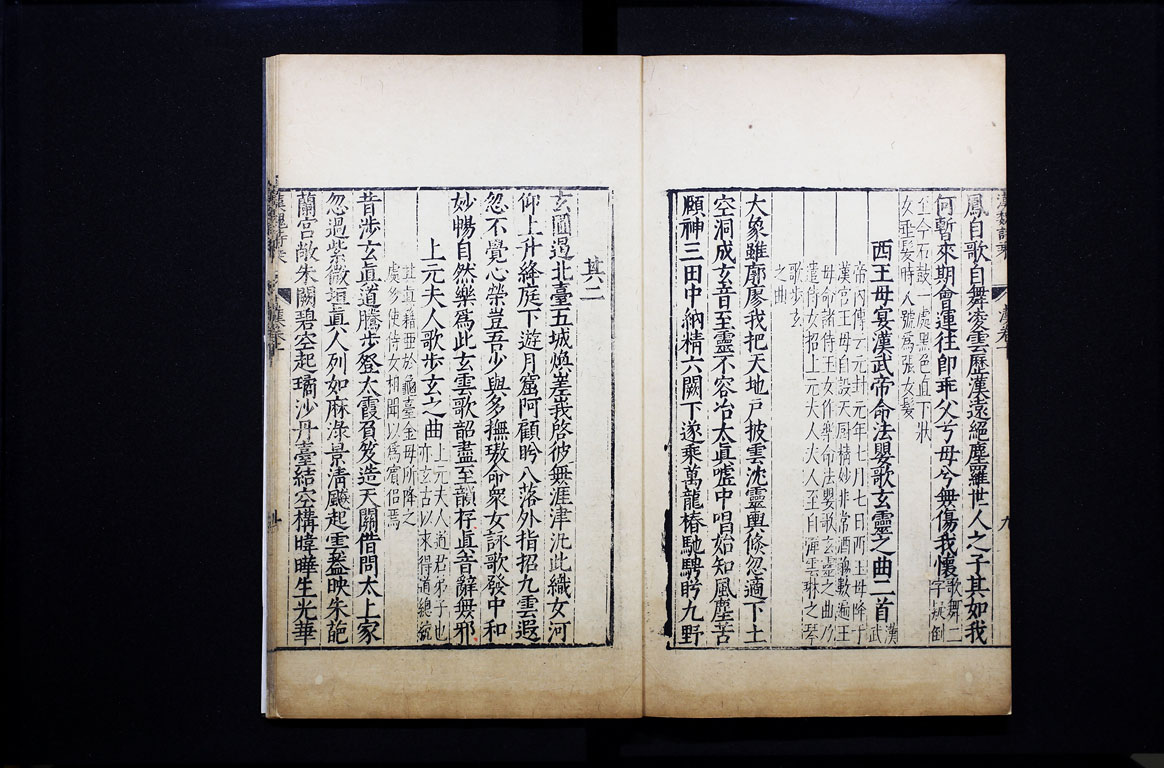 鳳自歌自舞凌雲歷漢遠絕塵羅世人之子其如我
何暫來期會運往卽乖父兮母兮無傷我懷歌舞二
字疑倒
至今石鼓一處黑色直下狀
女垂髮時人號爲張女髮
西王母宴漢武帝命法嬰歌玄靈之曲二首漢
武
帝內傳云元封元年七月七日西王母降于
漢宮王母自設天厨精妙非常酒觴數遍王
母命諸侍玉女作樂命法嬰歌玄靈之曲乃
遣侍女招上元夫人夫人至自彈雲琳之琴
歌步玄
之曲
大象雖廓廖我把天地戶披雲沈靈輿倏忽適下土
空洞成玄音至靈不容冶太眞噓中唱始知風塵苦
頤神三田中納精六闕下遂乘萬龍椿馳騁眄九野
其二
玄圃遏北臺五城煥嵳我啓彼無涯津汎此織女河
仰上升絳庭下遊月窟阿顧眄八落外指招九雲遐
忽不覺心榮豈吾少與多撫璈命衆女詠歌發中和
妙暢自然樂爲此玄雲歌韶盡至韻存眞音辭無邪
上元夫人歌步玄之曲上元夫人道君弟子也
亦玄古以來得道總統
其眞籍亞於龜臺金母所降之
處多使侍女相聞以爲賓侶焉
昔涉玄眞道騰步登太霞負笈造天關借問太上家
忽過紫微垣眞人列如麻淥景淸飈起雲葢映朱葩
蘭宮敞朱闕碧空起璚沙丹臺結空構暐曄生光華